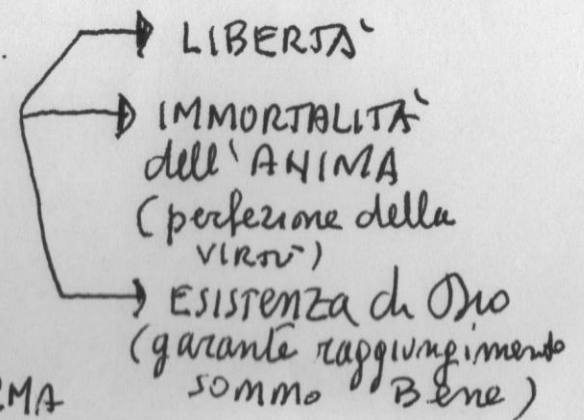 LIBERTÀ
IMMORTALITÀ
dell'ANIMA
(perfezione della
VIRTÙ)
ESISTENZA di Dio
(garante raggiungimento
SOMMO Bene)